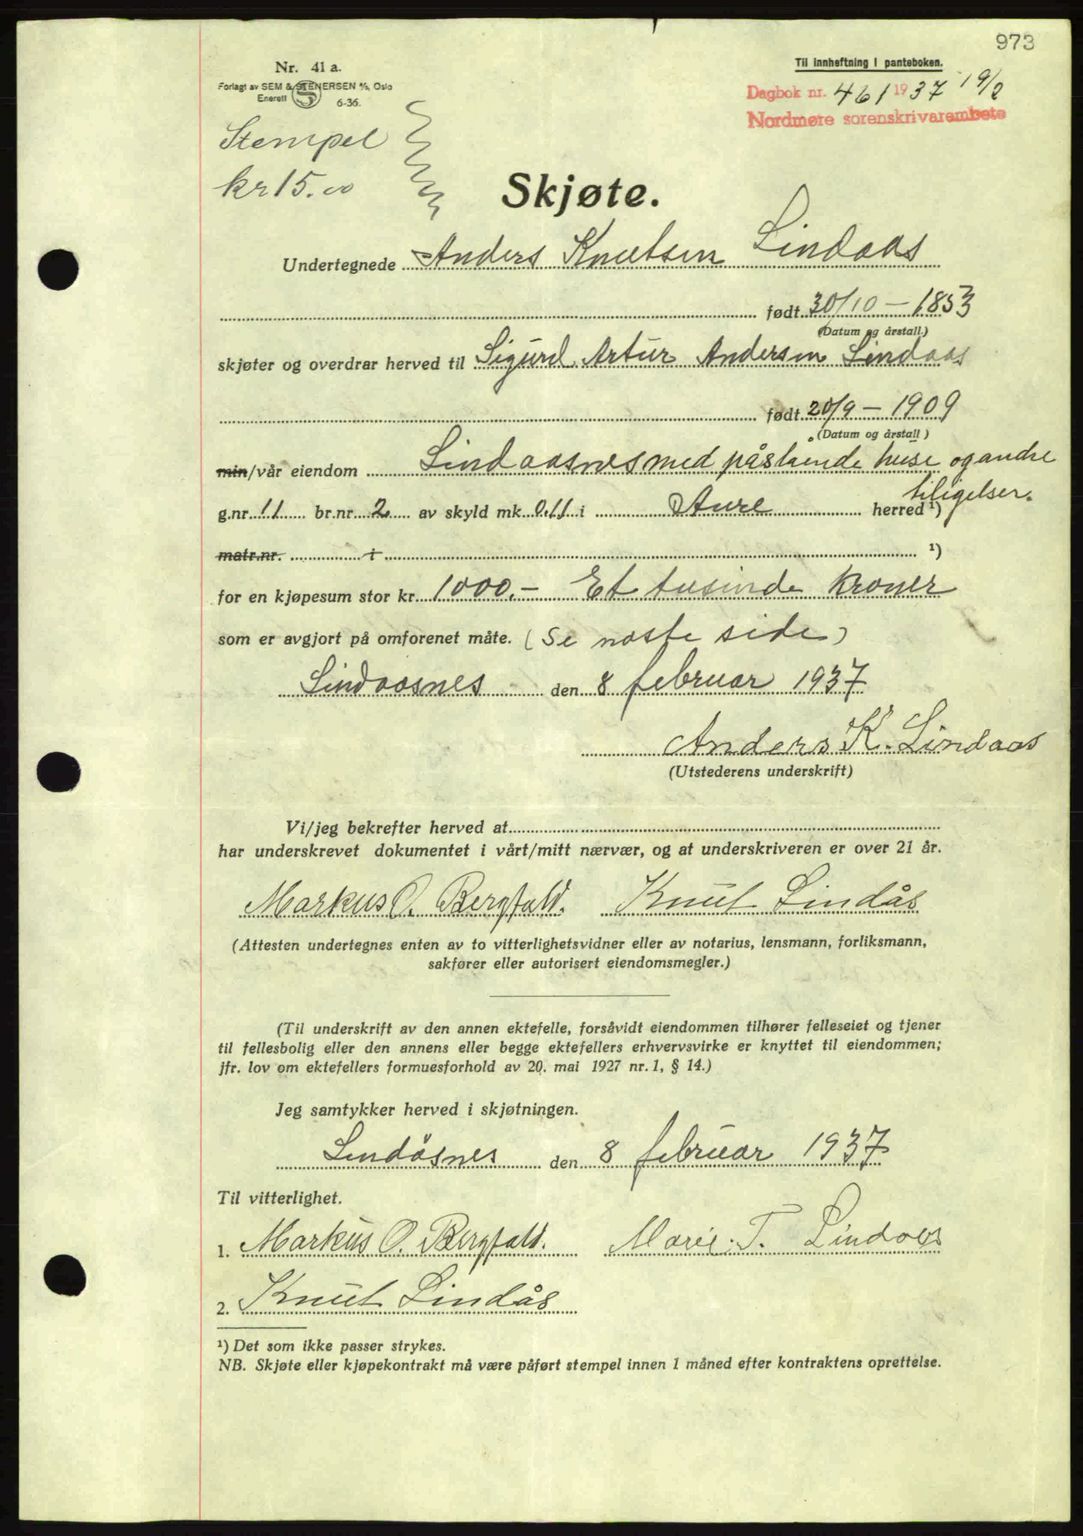 973
Nr. 41 a.
Forlagt av SEM & STENERSEN A/S, Oslo
Enerett 6-36.
Til innheftning i panteboken.
Dagbok nr. 461 1937 19/2
Nordmøre sorenskrivarembete
Stempel
kr 15.00
Skjøte.
Undertegnede Anders Knutsen Lindaas
født 30/10 - 1853
(Datum og årstall)
skjøter og overdrar herved til Sigurd Artur Andersen Lindaas
født 20/9 - 1909
(Datum og årstall)
min/vår eiendom Lindaasnes med påstående huse og andre
tiligelser.
g.nr. 11 br.nr. 2 av skyld mk. 0.11 i Aure herred ¹)
matr.nr. i ¹)
for en kjøpesum stor kr. 1000.- Et tusinde kroner
som er avgjort på omforenet måte. (Se næste side)
Lindaasnes den 8 februar 1937
Anders K. Lindaas
(Utstederens underskrift)
Vi/jeg bekrefter herved at
har underskrevet dokumentet i vårt/mitt nærvær, og at underskriveren er over 21 år.
Markus O. Bergfald. Knut Lindås
(Attesten undertegnes enten av to vitterlighetsvidner eller av notarius, lensmann, forliksmann,
sakfører eller autorisert eiendomsmegler.)
(Til underskrift av den annen ektefelle, forsåvidt eiendommen tilhører felleseiet og tjener
til fellesbolig eller den annens eller begge ektefellers erhvervsvirke er knyttet til eiendommen;
jfr. lov om ektefellers formuesforhold av 20. mai 1927 nr. 1, § 14.)
Jeg samtykker herved i skjøtningen.
Lindåsnes den 8 februar 1937
Til vitterlighet.
1. Markus O. Bergfald. Marie T. Lindaas
2. Knut Lindås
¹) Det som ikke passer strykes.
NB. Skjøte eller kjøpekontrakt må være påført stempel innen 1 måned efter kontraktens oprettelse.